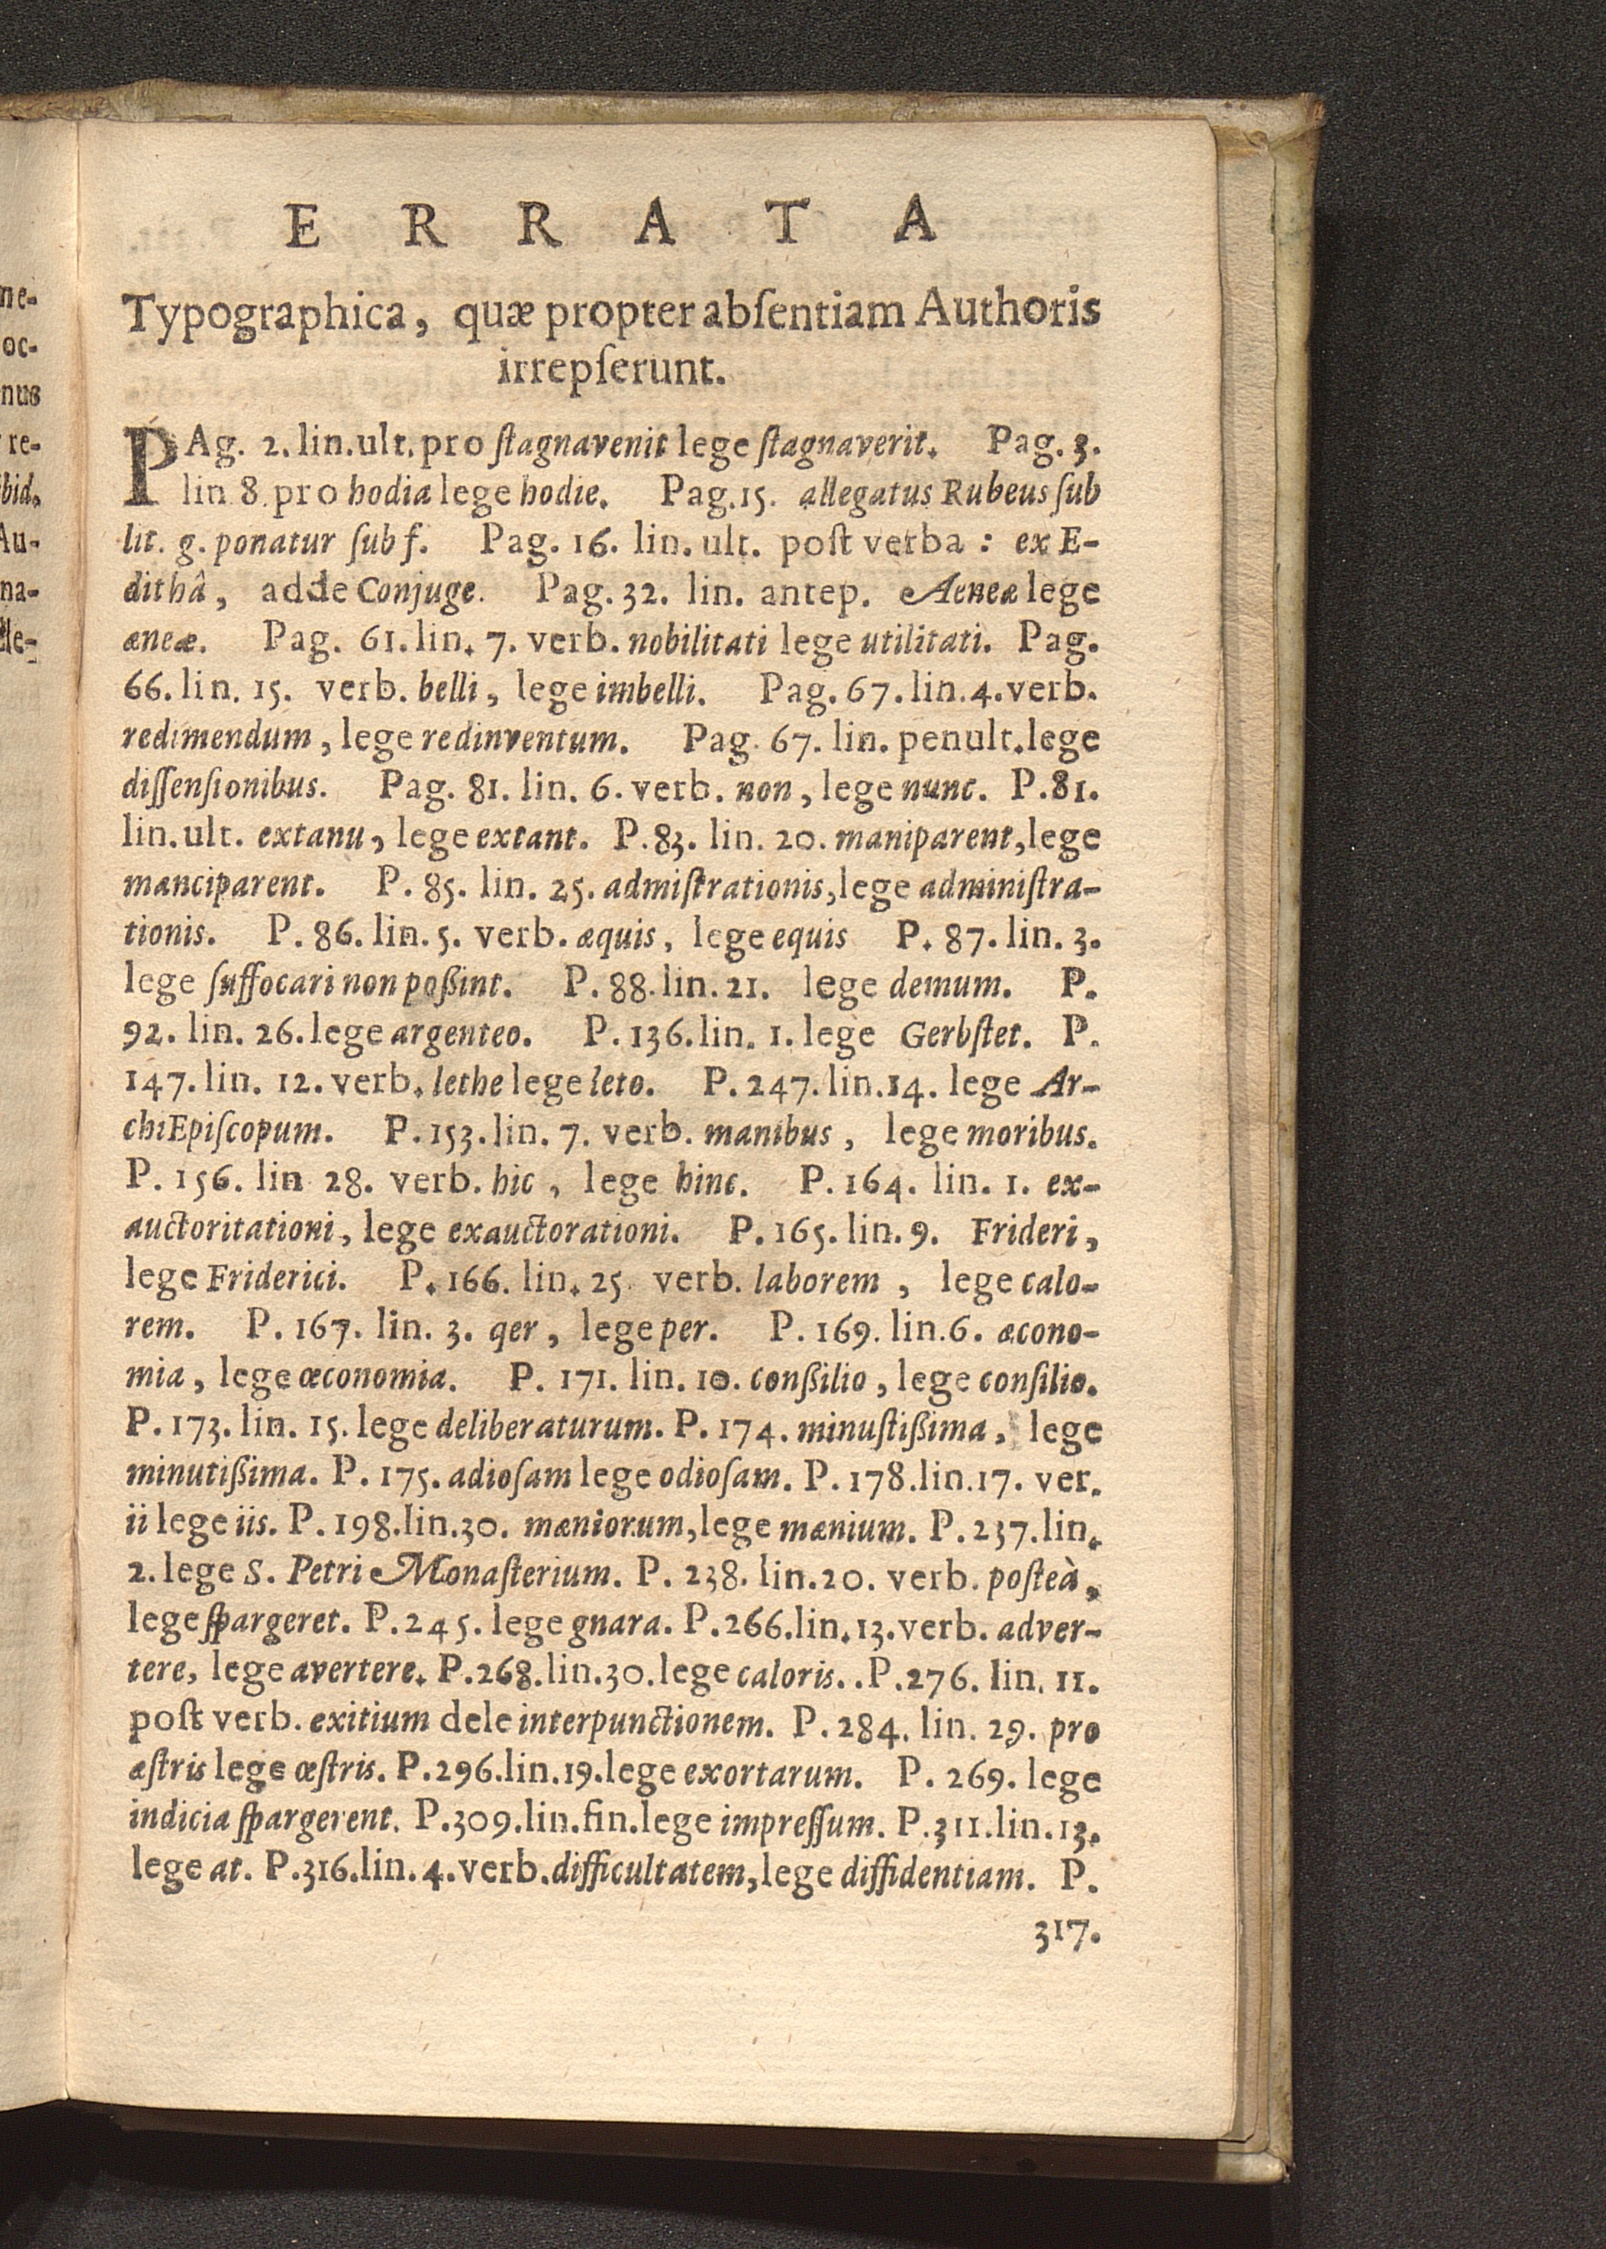 ne-
oc-
nus
re-
ibid.
Au-
na-
lle-
E R R A T A
Typographica, quæ propter abſentiam Authoris
irrepſerunt.
PAg. 2. lin. ult. pro ſtagnavenit lege ſtagnaverit. Pag. 3.
lin 8. pro hodia lege hodie. Pag. 15. allegatus Rubeus ſub
lit. g. ponatur ſub f. Pag. 16. lin. ult. poſt verba : ex E-
dithâ, adde Conjuge. Pag. 32. lin. antep. Aeneæ lege
æneæ. Pag. 61. lin. 7. verb. nobilitati lege utilitati. Pag.
66. lin. 15. verb. belli, lege imbelli. Pag. 67. lin. 4. verb.
redimendum, lege redinventum. Pag. 67. lin. penult. lege
diſſenſionibus. Pag. 81. lin. 6. verb. non, lege nunc. P. 81.
lin. ult. extanu, lege extant. P. 83. lin. 20. maniparent, lege
manciparent. P. 85. lin. 25. admiſtrationis, lege adminiſtra-
tionis. P. 86. lin. 5. verb. æquis, lege equis P. 87. lin. 3.
lege ſuffocari non poßint. P. 88. lin. 21. lege demum. P.
92. lin. 26. lege argenteo. P. 136. lin. 1. lege Gerbſtet. P.
147. lin. 12. verb. lethe lege leto. P. 247. lin. 14. lege Ar-
chiEpiſcopum. P. 153. lin. 7. verb. manibus, lege moribus.
P. 156. lin 28. verb. hic, lege hinc. P. 164. lin. 1. ex-
auctoritationi, lege exauctorationi. P. 165. lin. 9. Frideri,
lege Friderici. P. 166. lin. 25. verb. laborem, lege calo-
rem. P. 167. lin. 3. qer, lege per. P. 169. lin. 6. æcono-
mia, lege œconomia. P. 171. lin. 10. conßilio, lege conſilio.
P. 173. lin. 15. lege deliberaturum. P. 174. minuſtißima, lege
minutißima. P. 175. adioſam lege odioſam. P. 178. lin. 17. ver.
ii lege iis. P. 198. lin. 30. mæniorum, lege mænium. P. 237. lin.
2. lege S. Petri Monaſterium. P. 238. lin. 20. verb. poſteà,
lege ſpargeret. P. 245. lege gnara. P. 266. lin. 13. verb. adver-
tere, lege avertere. P. 268. lin. 30. lege caloris. . P. 276. lin. 11.
poſt verb. exitium dele interpunctionem. P. 284. lin. 29. pro
æſtris lege œſtris. P. 296. lin. 19. lege exortarum. P. 269. lege
indicia ſpargerent. P. 309. lin. fin. lege impreſſum. P. 311. lin. 13.
lege at. P. 316. lin. 4. verb. difficultatem, lege diffidentiam. P.
317.